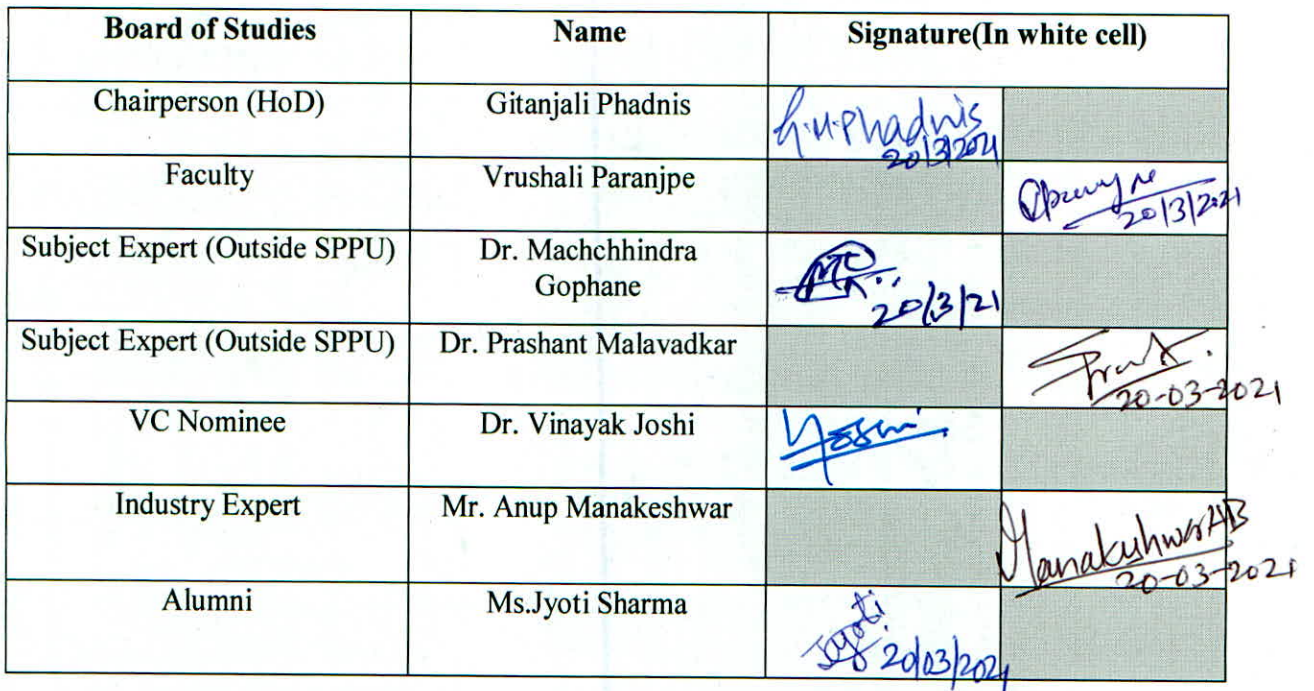 Board of Studies Name Signature(In white cell)
Chairperson (HoD) Gitanjali Phadnis G.M.Phadnis
20/3/2021
Faculty Vrushali Paranjpe
20/3/2021
Subject Expert (Outside SPPU) Dr. Machchhindra
Gophane
20/3/21
Subject Expert (Outside SPPU) Dr. Prashant Malavadkar
20-03-2021
VC Nominee Dr. Vinayak Joshi
Industry Expert Mr. Anup Manakeshwar ManakeshwarAB
20-03-2021
Alumni Ms.Jyoti Sharma Jyoti
20/03/2021